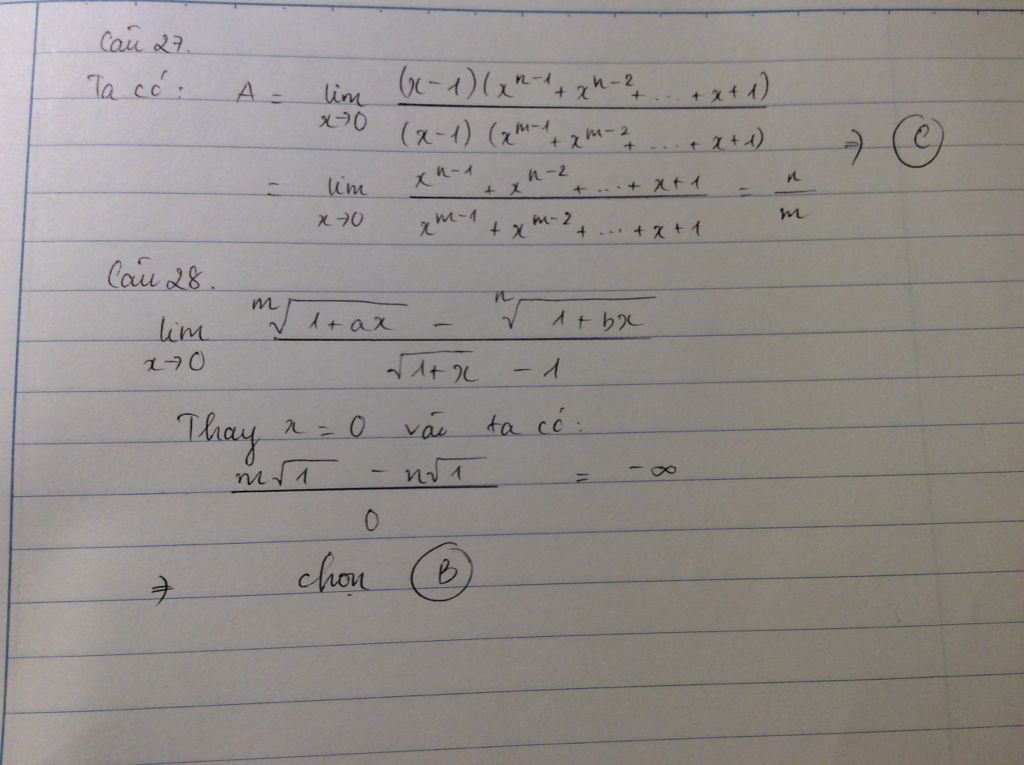 Câu 27.
Ta có: A = lim x→0 (x-1)(x^{n-1} + x^{n-2} + ... + x+1) / (x-1)(x^{m-1} + x^{m-2} + ... + x+1) ⇒ C
= lim x→0 x^{n-1} + x^{n-2} + ... + x+1 / x^{m-1} + x^{m-2} + ... + x+1 = n/m
Câu 28.
lim x→0 ᵐ√(1+ax) - ⁿ√(1+bx) / √(1+x) - 1
Thay x = 0 vài ta có:
m√1 - n√1 / 0 = -∞
⇒ chọn B